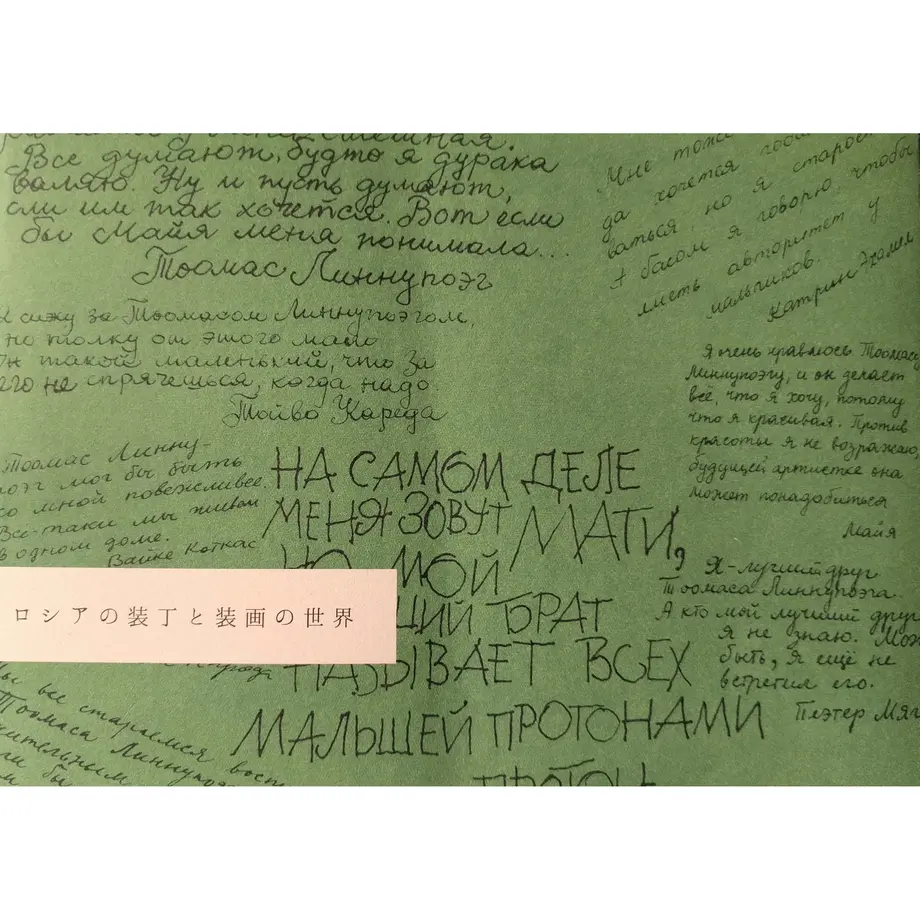 смешная.
Все думают, будто я дурака
валяю. Ну и пусть думают,
сли им так хочется. Вот если
бы Майя меня понимала...
Тоомас Линнупоэг
Мне тоже
да хочется
ваться, но я
Я басом я говорю, чтобы
иметь авторитет у
мальчиков.
Катрин
сижу за Тоомасом Линнупоэгом,
но толку от этого мало
Он такой маленький, что за
его не спрячешься, когда надо.
Тойво Кареда
Я очень нравлюсь Тоомасу
Линнупоэгу, и он делает
всё, что я хочу, потому
что я красивая. Против
красоты я не возражаю,
будущей артистке она
может понадобиться
Майя
Тоомас Линну-
поэг мог бы быть
со мной повежливее.
Всё-таки мы живём
в одном доме.
Вайке Коткас
НА САМОМ ДЕЛЕ
МЕНЯ ЗОВУТ МАТИ,
НО МОЙ
ЩИЙ БРАТ
НАЗЫВАЕТ ВСЕХ
МАЛЫШЕЙ ПРОТОНАМИ
ПРОТОН
Я-лучший друг
Тоомаса Линнупоэга.
А кто мой лучший друг
я не знаю. Мож
быть, я ещё не
встретил его.
Пеэтер Мяг
ロシアの装丁と装画の世界
мы все стараемся
Тоомаса Линнупоэ
бы